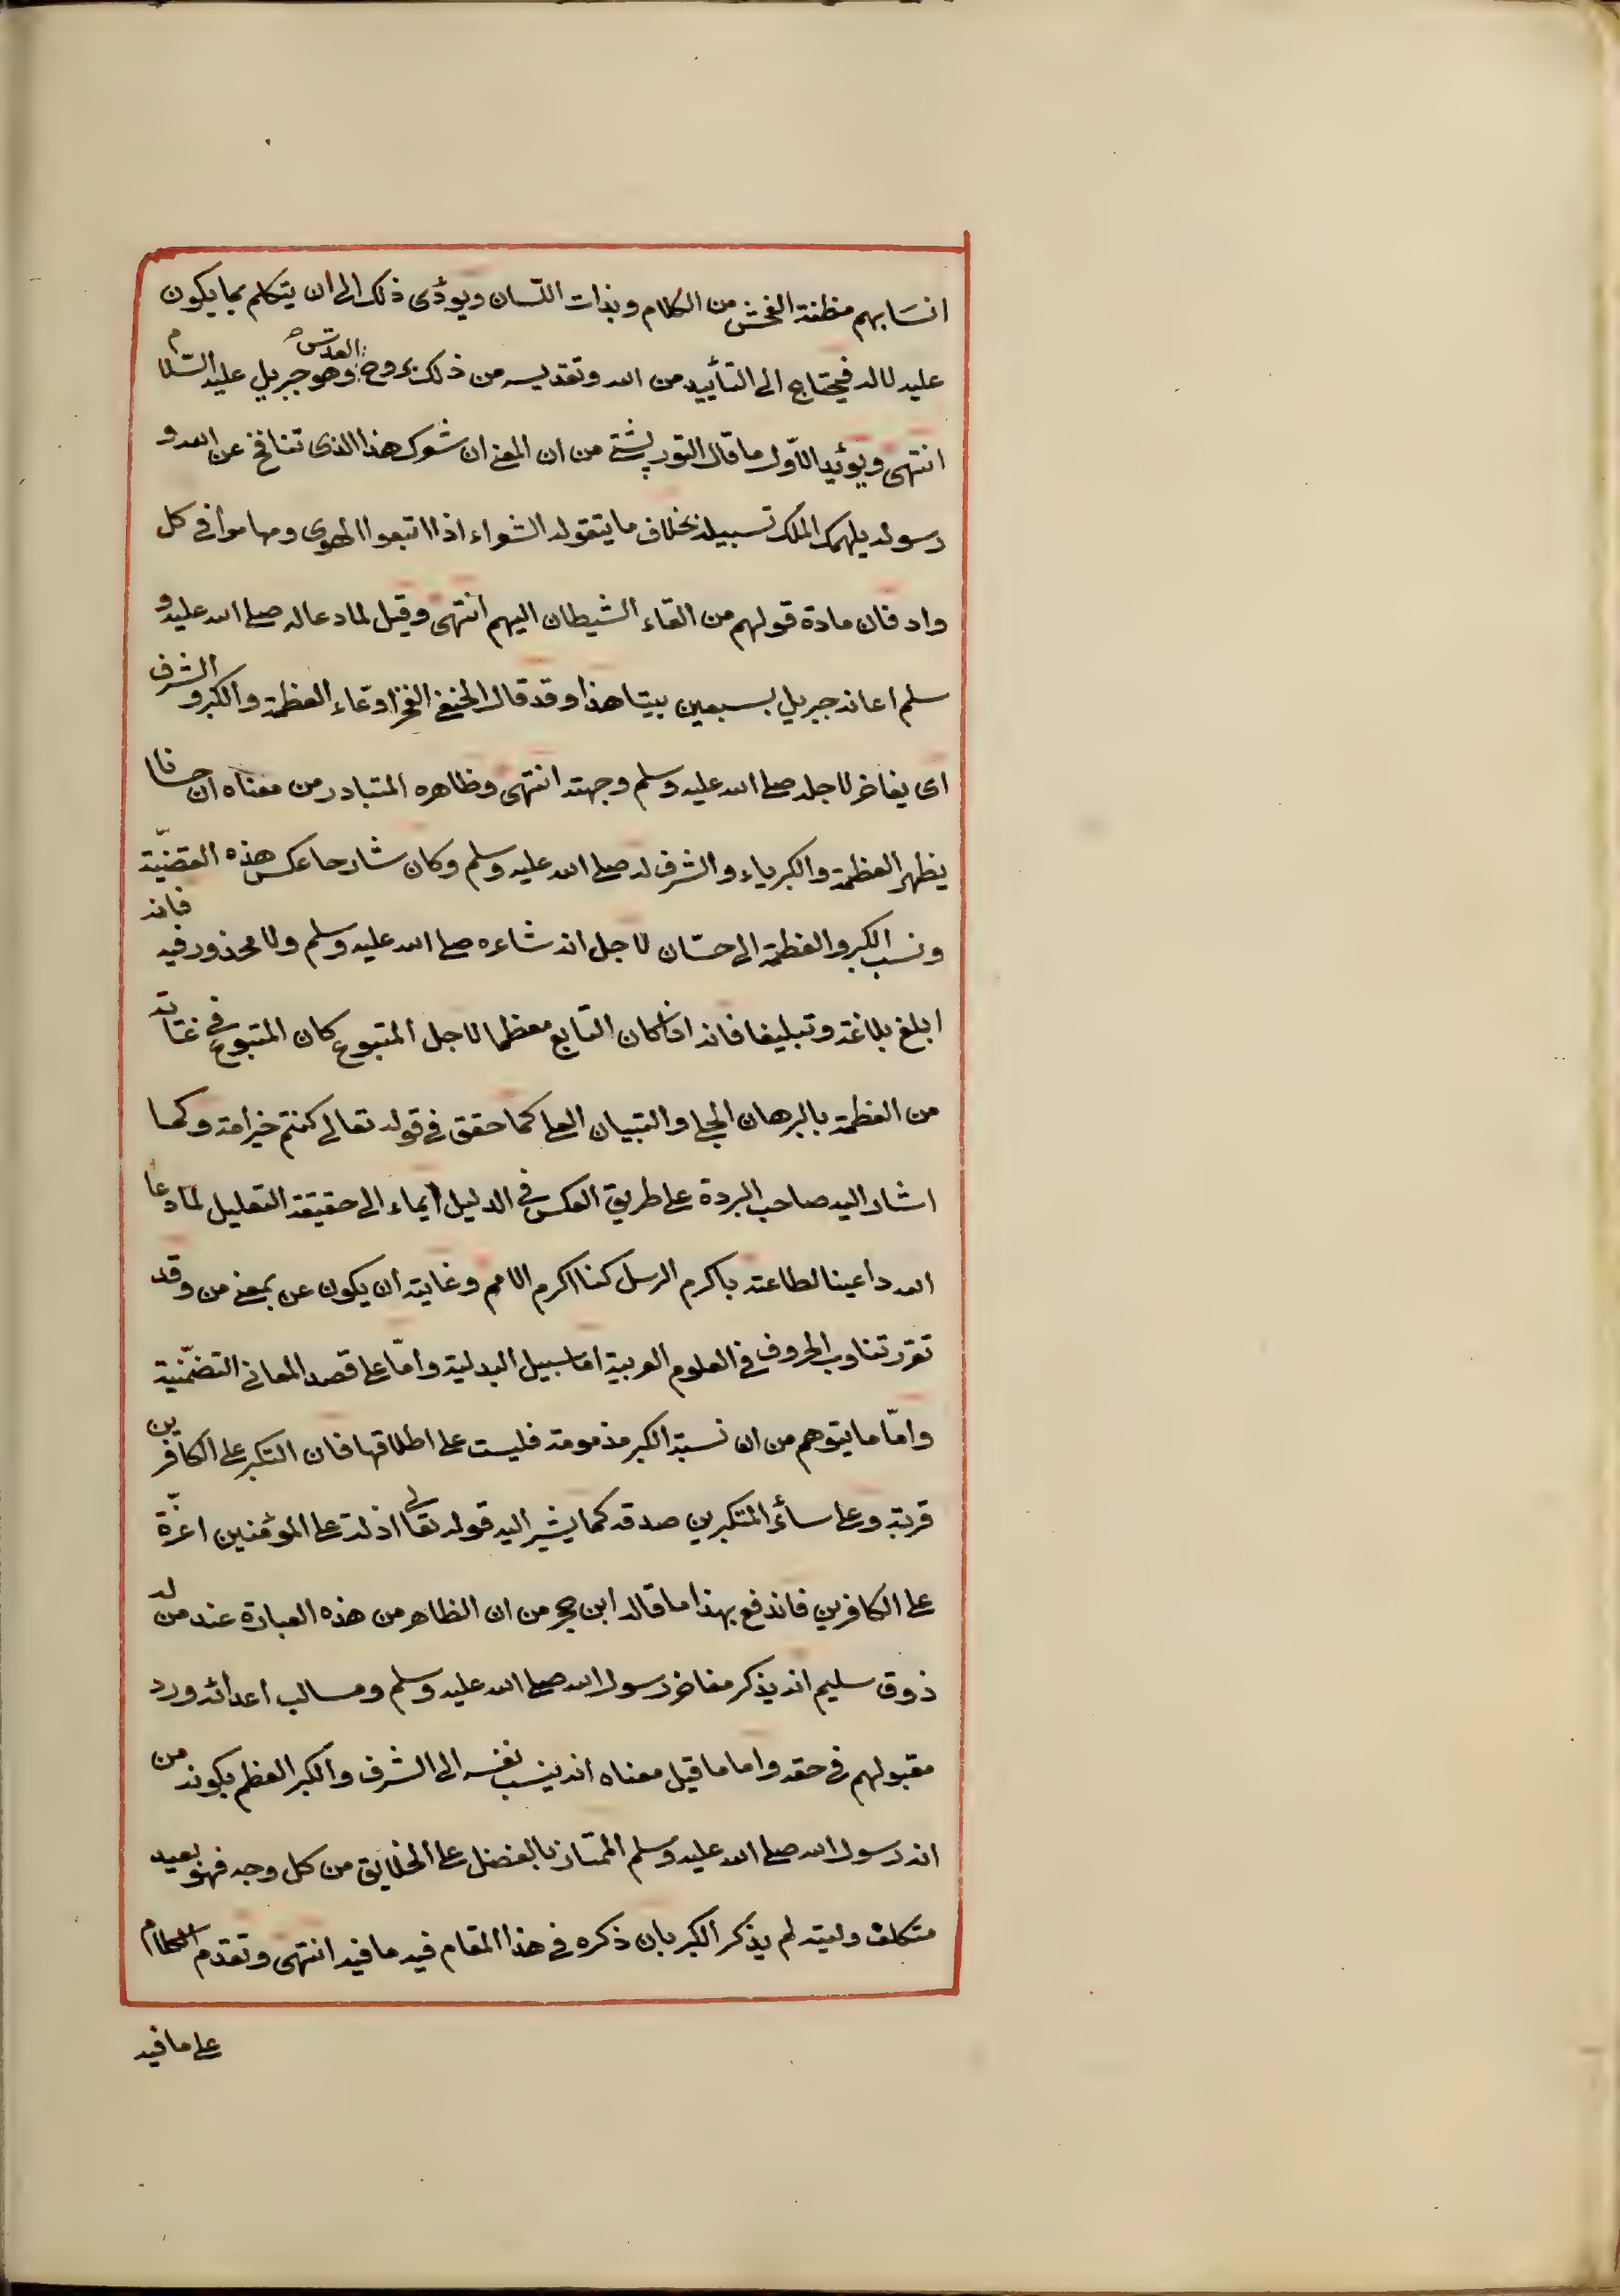 انسابهم مظنة الفحش من الكلام وبذات اللسان ويؤدى ذلك الى ان يتكلم بما يكون
عليه لا له فيحتاج الى التأييد من الله وتقديسه من ذلك بروح القدس وهو جبريل عليه السلام
انتهى ويؤيد الاول ما قال التوربشتى من ان المعنى ان شعرك هذا الذى تنافح عن الله و
رسوله يلهمك الملك تسبيله بخلاف ما يتقوله الشعراء اذا اتبعوا الهوى وهاموا فى كل
واد فان مادة قولهم من القاء الشيطان اليهم انتهى وقيل لما دعا له صلى الله عليه و
سلم اعانه جبريل بسبعين بيتا هذا وقد قال الحنفى الفخر ادعاء العظمة والكبر والشرف
اى يفاخر لاجله صلى الله عليه وسلم وجهته انتهى وظاهره المتبادر من معناه ان حسانا
يظهر العظمة والكبرياء والشرف له صلى الله عليه وسلم وكان شارحا عكس هذه القضية
ونسب الكبر والعظمة الى حسّان لاجل انه شاعره صلى الله عليه وسلم ولا محذور فيه فانه
ابلغ بلاغة وتبليغا فانه اذا كان التابع معظما لاجل المتبوع كان المتبوع فى غاية
من العظمة بالبرهان الجلى والتبيان العلى كما حقق فى قوله تعالى كنتم خير امة وكما
اشار اليه صاحب البردة على طريق العكس فى الدليل ايماء الى حقيقة التعليل لما دعا
الله داعينا لطاعته باكرم الرسل كنا اكرم الامم وغايته ان يكون عن بمعنى من وقد
تقرر تناوب الحروف فى العلوم العربية اما سبيل البدلية وامّا على قصد المعانى التضمّنية
وامّا ما يتوهم من ان نسبة الكبر مذمومة فليست على اطلاقها فان التكبر على الكافرين
قربة وعلى سائر المتكبرين صدقة كما يشير اليه قوله تعالى اذلة على المؤمنين اعزّة
على الكافرين فاندفع بهذا ما قال ابن حجر من ان الظاهر من هذه العبارة عند من له
ذوق سليم انه يذكر مفاخر رسول الله صلى الله عليه وسلم ومسالب اعدائه ورد
مقبولهم فى حقه واما ما قيل معناه انه ينسب نفسه الى الشرف والكبر العظم بكونه من
انه رسول الله صلى الله عليه وسلم الممتاز بالفضل على الخلايق من كل وجه فهو بعيد
متكلف وليته لم يذكر الكبر بان ذكره فى هذا المقام فيه ما فيه انتهى وتقدم الكلام
على ما فيه